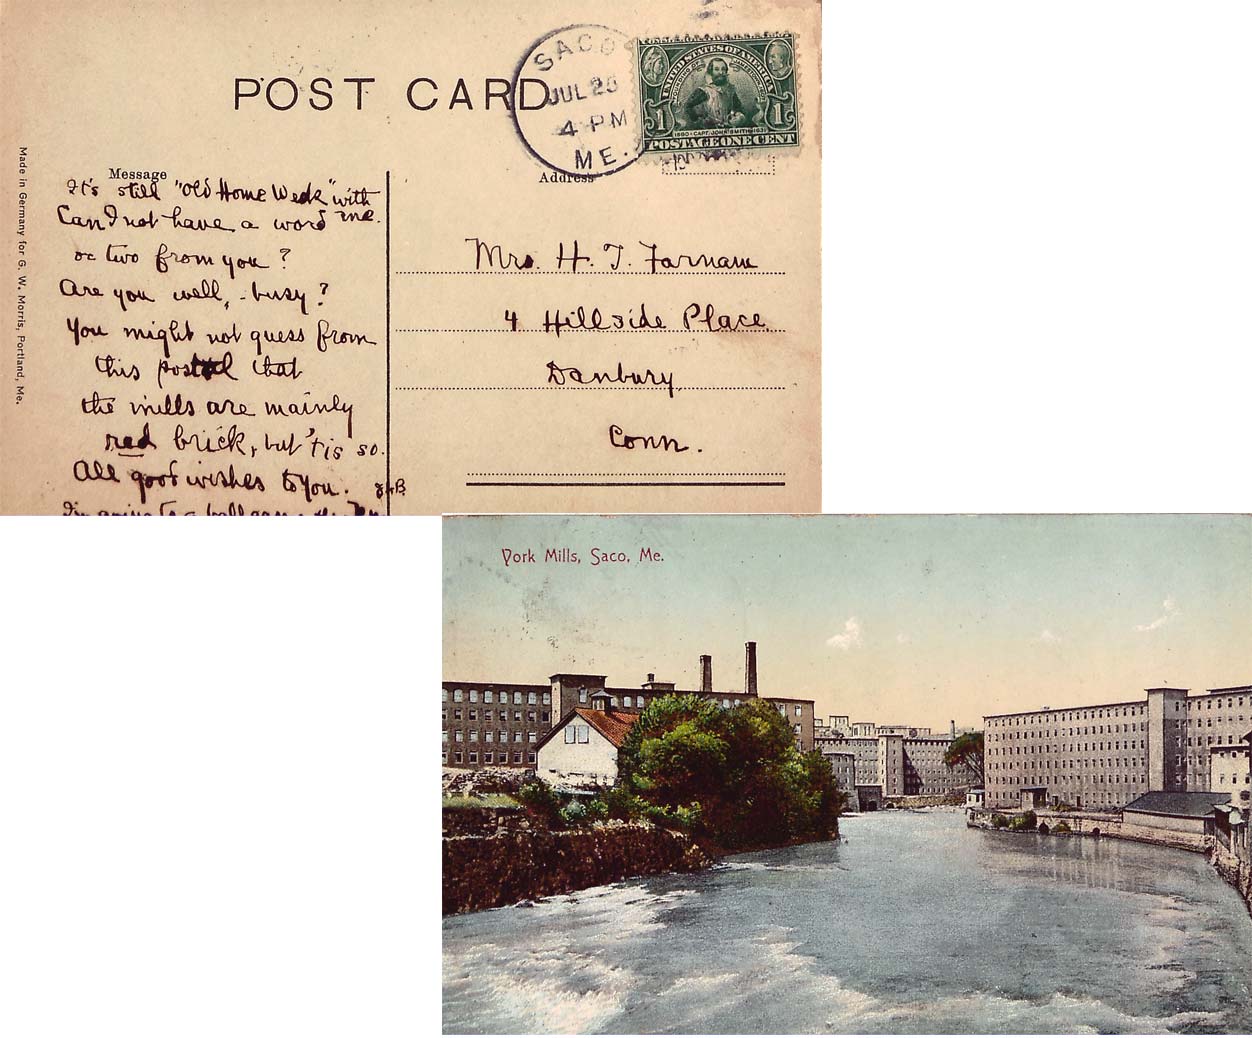 POST CARD
SACO
JUL 25
4 PM
ME.
UNITED STATES OF AMERICA
FOUNDING OF JAMESTOWN
1 1
1580 · CAPT. JOHN SMITH · 1631
POSTAGE ONE CENT
Made in Germany for G. W. Morris, Portland, Me.
Message
It's still "Old Home Week" with me.
Can I not have a word
or two from you?
Are you well, - busy?
You might not guess from
this postal that
the mills are mainly
red brick, but 'tis so.
All good wishes to you.
Address
Mrs. H. T. Farnam
4 Hillside Place
Danbury
Conn.
York Mills, Saco, Me.